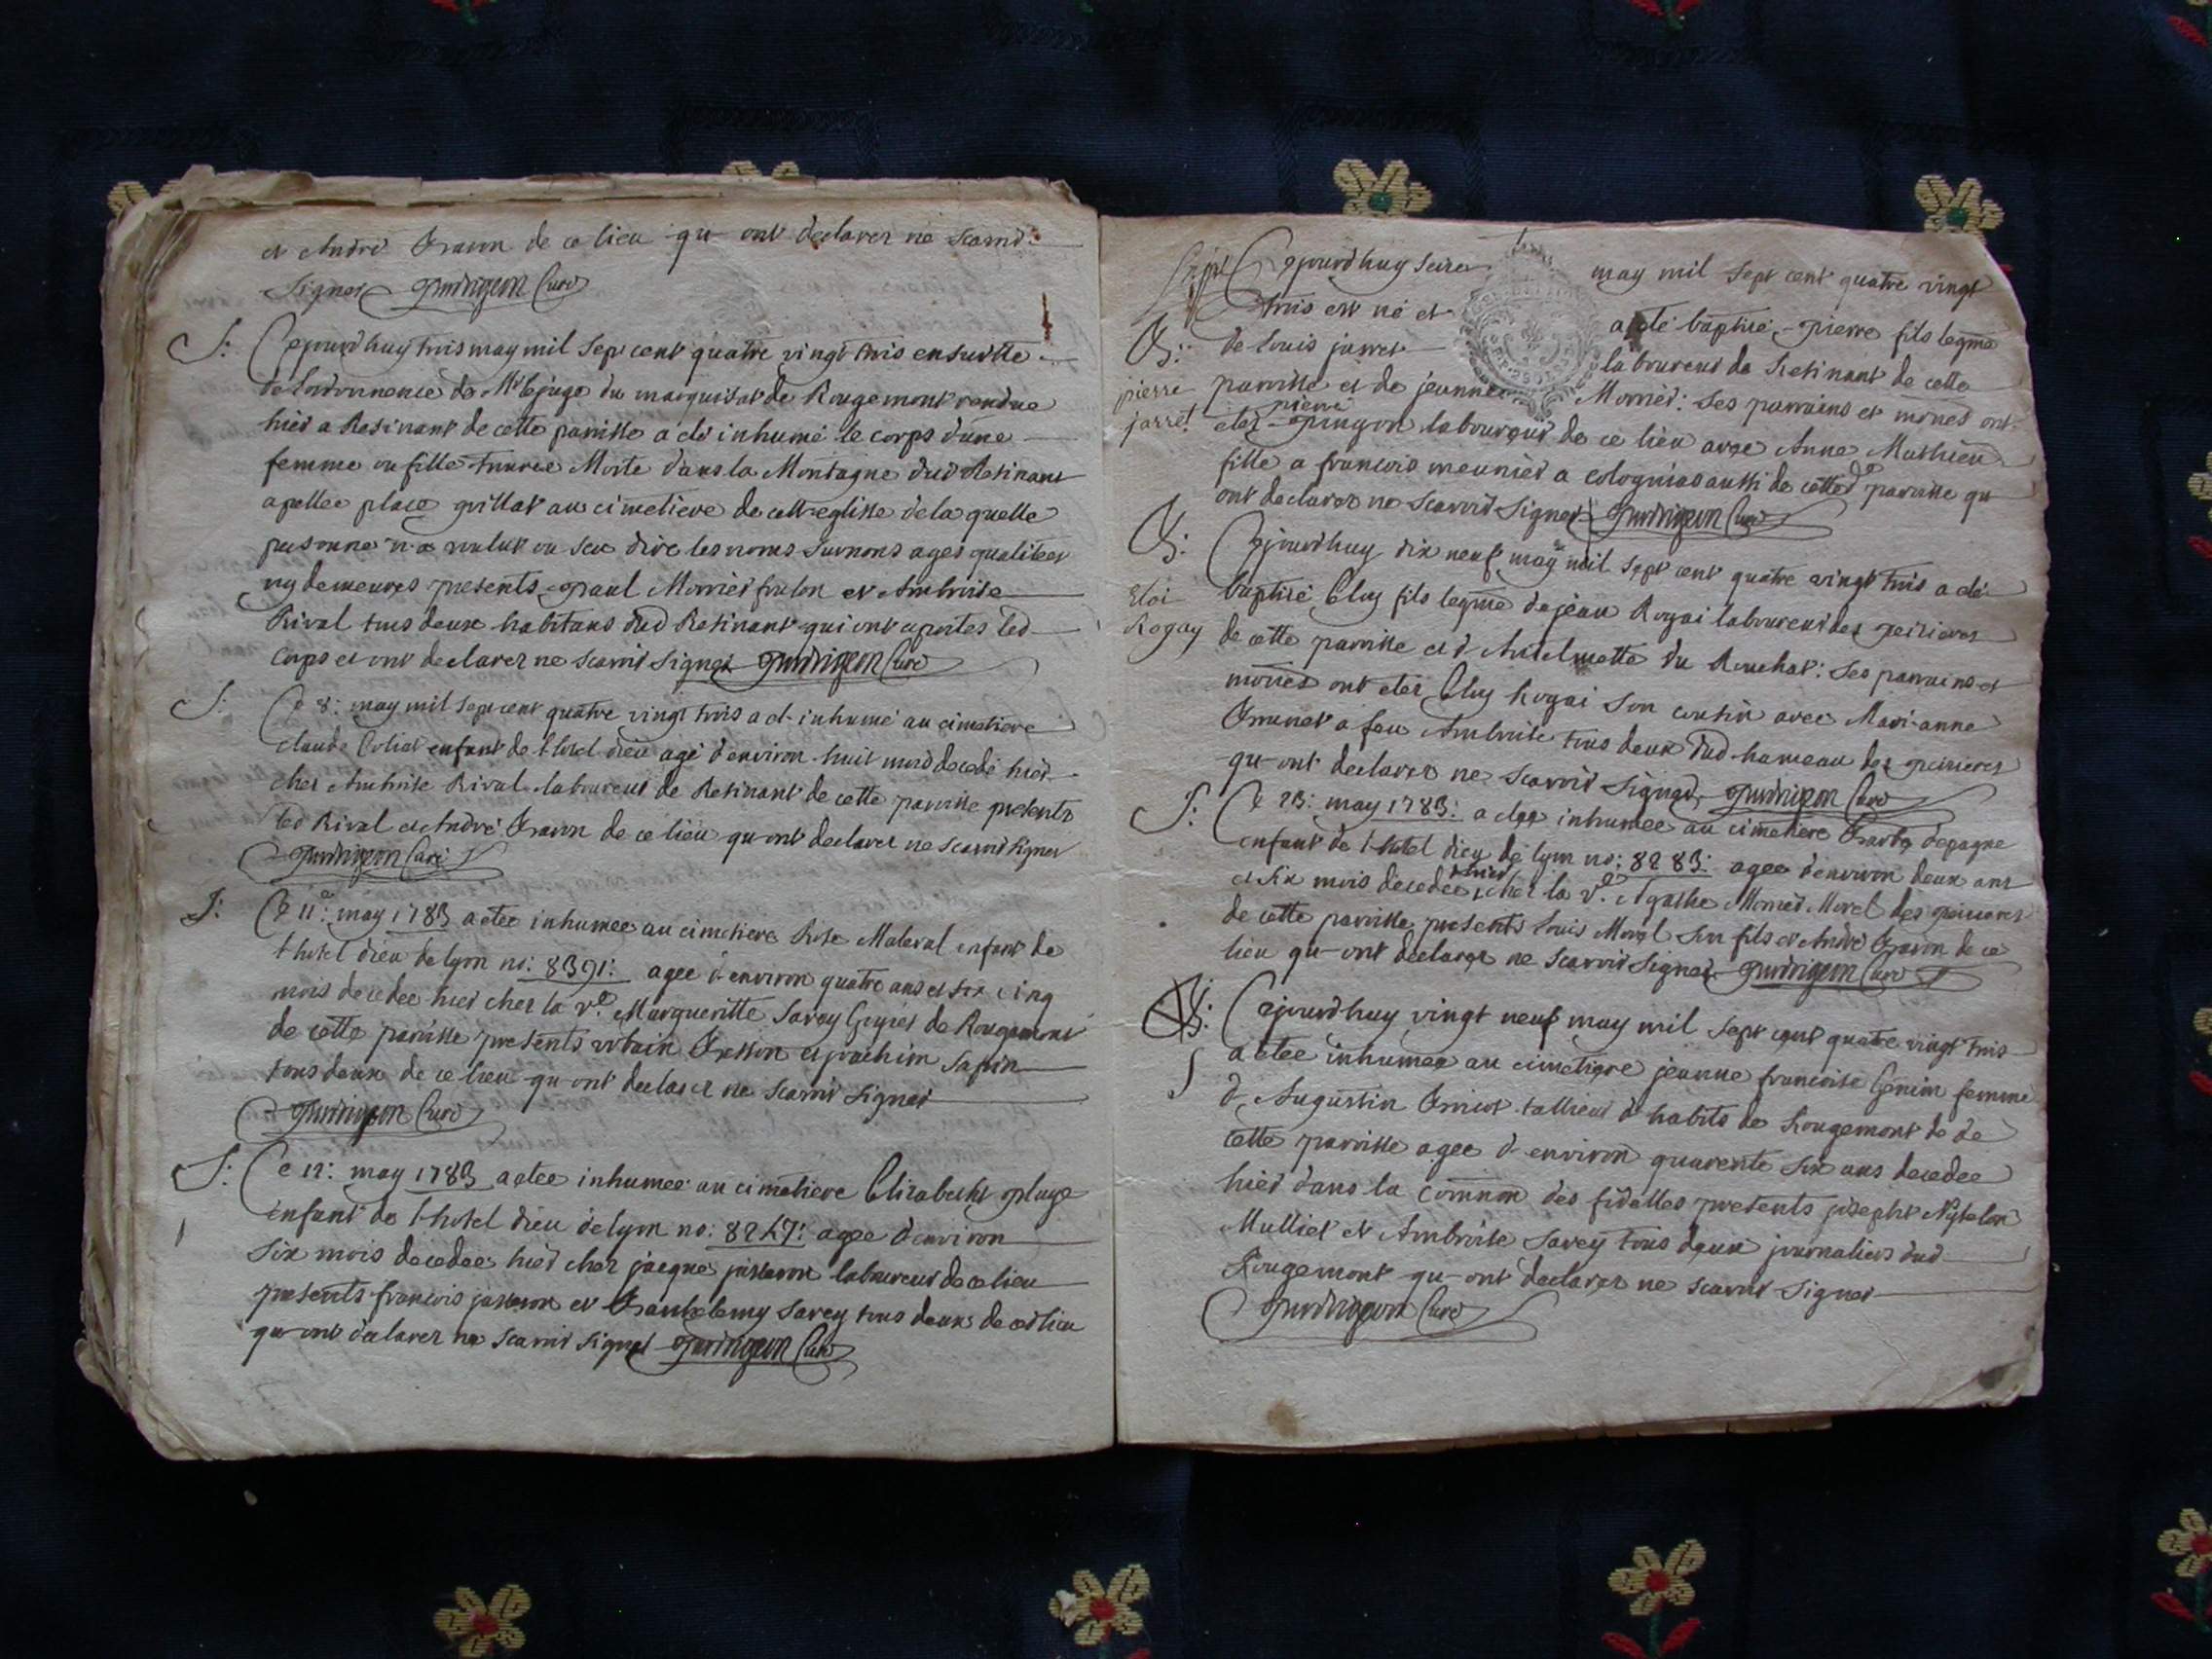 et André Gravon de ce lieu qu ont declarer ne scavoir
signer Curé
S: Cejourdhuy trois may mil sept cent quatre vingt trois ensuitte
de lordonnence de Mr le juge du marquisat de Rougemont rendue
hier a Resinant de cette paroisse a eté inhumé le corps d'une
femme ou fille trouvee Morte dans la Montagne dud Resinant
apellee place grillat au cimetiere de cette eglisse de la quelle
personne n'a voulut ou sceu dire les noms surnoms ages qualitees
ny demeures presents paul Monier et Ambroise
Rival tous deux habitans dud Resinant qui ont aportes led
corps et ont declarer ne scavoir signer Curé
S: Ce 8: may mil sept cent quatre vingt trois a eté inhumé au cimetiere
claude enfant de l hotel dieu agé d'environ huit mois decedé hier
cher Ambroise Rival laboureur de Resinant de cette paroisse presents
led Rival et André Gravon de ce lieu qu ont declarer ne scavoir signer
Curé
S: Ce 11e: may 1783 a etee inhumee au cimetiere Rose Maleval enfant de
l hotel dieu de lyon no: 8391: agee d environ quatre ans et six cinq
mois decedee hier cher la ve. Margueritte Savey de Rougemont
de cette paroisse presents et joachim Sapin
tous deux de ce lieu qu ont declarer ne scavoir signer
Curé
S: Ce 12: may 1783 a etee inhumee au cimetiere Elizabeth
enfant de l hotel dieu de lyon no: 8247: agee d'environ
six mois decedee hier cher jacque josseron laboureur de ce lieu
presents francois josseron et Barthelemy Savey tous deux de ce dlieu
qu ont declarer ne scavoir signer Curé
Cejourdhuy seize may mil sept cent quatre vingt
trois est né et a eté baptisé pierre fils legme
B: de louis jarret laboureur de Resinant de cette
pierre paroisse et de jeanne Monier: ses parrains et mores ont
jarret etes pierre laboureur de ce lieu avec Anne Mathieu
fille a francois meunier a aussi de cette de paroisse qu
ont declarer ne scavoir signer Curé
B: Cejourdhuy dix neuf may mil sept cent quatre vingt trois a eté
Eloi baptisé Eloy fils legme de jean Rogai laboureur des
Rogay de cette paroisse et d Antelmette du Rouchat: ses parrains et
mores ont etes Eloy Rogai son cousin avec Marianne
a feu Ambroise tous deux dud hameau des
qu ont declarer ne scavoir signer Curé
S: Ce 23: may 1783: a etee inhumee au cimetiere
enfant de l hotel dieu de lyon no: 8283: agee d'environ deux ans
et six mois decedee hier cher la ve. Agathe Monier Morel des
de cette paroisse presents louis Morel son fils et André Gravon de ce
lieu qu ont declarer ne scavoir signer Curé
Cejourdhuy vingt neuf may mil sept cent quatre vingt trois
S a etee inhumee au cimetiere jeanne francoise Genin femme
d Augustin tallieur d habits de Rougemont de de
cette paroisse agee d environ quarente six ans decedee
hier dans la comnion des fidelles presents joseph
Mulliet et Ambroise Savey tous deux journaliers dud
Rougemont qu ont declarer ne scavoir signer
Curé